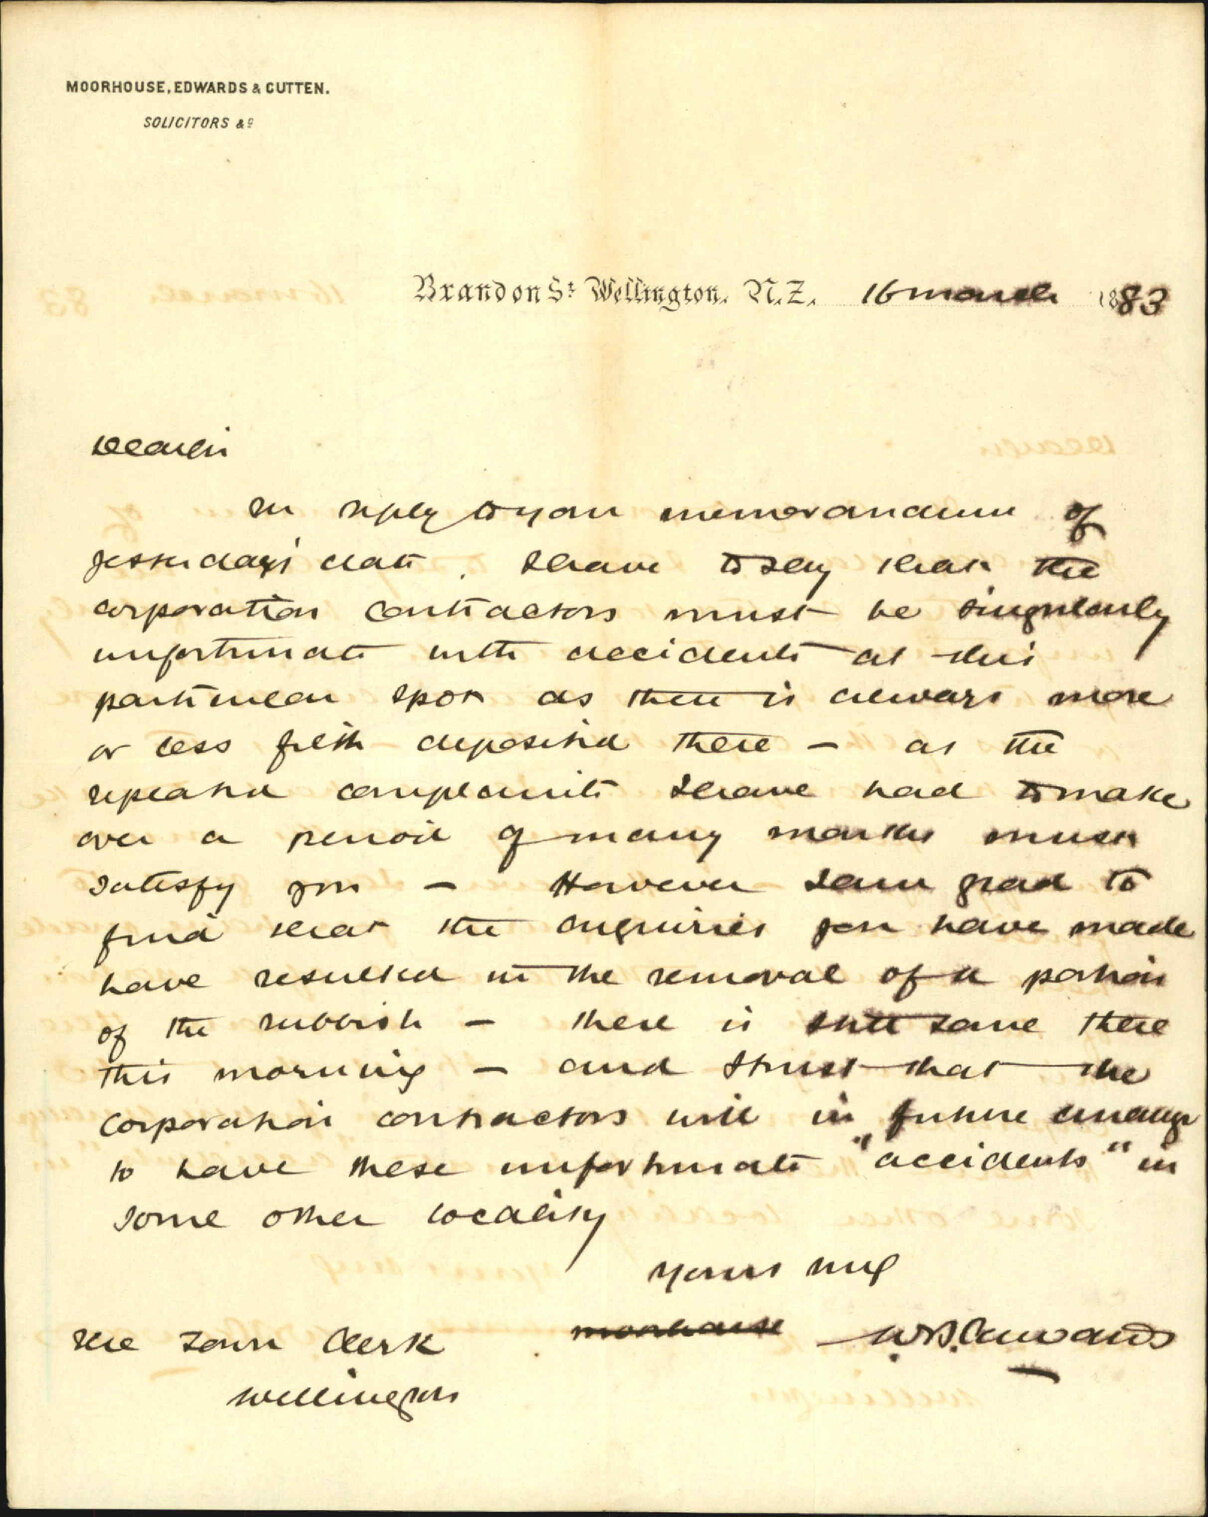 MOORHOUSE, EDWARDS & CUTTEN.
SOLICITORS &c
Brandon St Wellington, N.Z. 16 March 1883
Dear Sir
In reply to your memorandum of
yesterday's date. I have to say that the
corporation contractors must be singularly
unfortunate with accidents at this
particular spot as there is always more
or less filth deposited there - as the
repeated complaints I have had to make
over a period of many months must
satisfy you - However I am glad to
find that the enquiries you have made
have resulted in the removal of a portion
of the rubbish - there is still some there
this morning - and I trust that the
corporation contractors will in future arrange
to have these unfortunate "accidents" in
some other locality
Yours truly
Moorhouse W.B. Edwards
The Town Clerk
Wellington